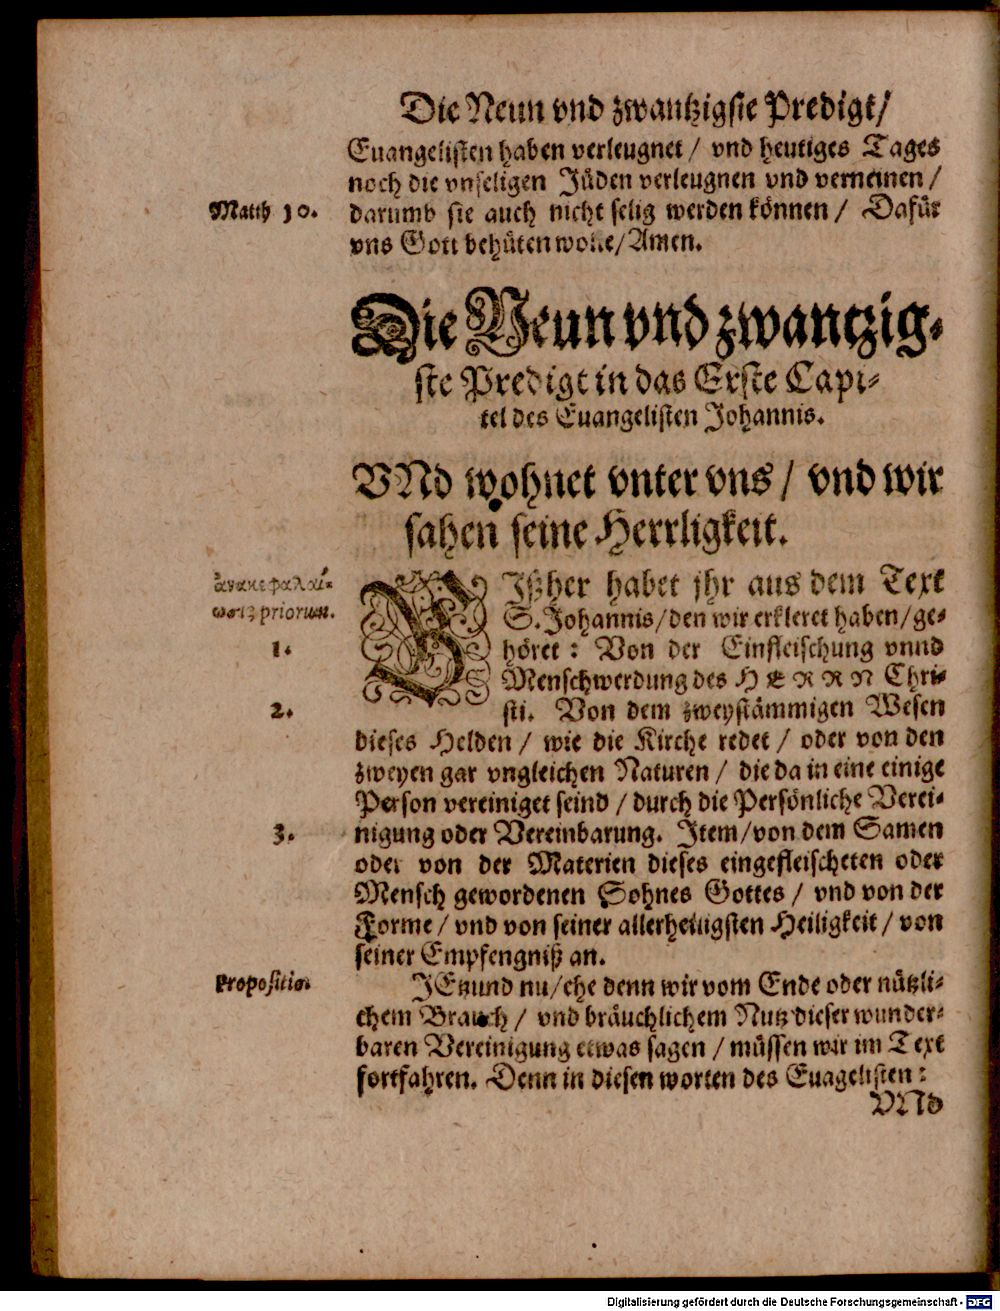 Die Neun vnd zwantzigste Predigt/
Euangelisten haben verleugnet / vnd heutiges Tages
noch die vnseligen Jüden verleugnen vnd verneinen /
Matth 10. darumb sie auch nicht selig werden können / Dafür
vns Gott behüten wolle/Amen.
Die Neun vnd zwantzig-
ste Predigt in das Erste Capi-
tel des Euangelisten Johannis.
VNd wohnet vnter vns / vnd wir
sahen seine Herrligkeit.
ἀνακεφαλαί-
ωσις priorum.
BIßher habet jhr aus dem Text
S. Johannis/den wir erkleret haben/ge-
1. höret : Von der Einfleischung vnnd
Menschwerdung des HERRN Chri-
2. sti. Von dem zweystämmigen Wesen
dieses Helden / wie die Kirche redet / oder von den
zweyen gar vngleichen Naturen / die da in eine einige
Person vereiniget seind / durch die Persönliche Verei-
3. nigung oder Vereinbarung. Item/von dem Samen
oder von der Materien dieses eingefleischeten oder
Mensch gewordenen Sohnes Gottes / vnd von der
Forme / vnd von seiner allerheiligsten Heiligkeit / von
seiner Empfengniß an.
Propositio. JEtzund nu/ehe denn wir vom Ende oder nützli-
chem Brauch / vnd bräuchlichem Nutz dieser wunder-
baren Vereinigung etwas sagen / müssen wir im Text
fortfahren. Denn in diesen worten des Euagelisten :
VNd
Digitalisierung gefördert durch die Deutsche Forschungsgemeinschaft - DFG